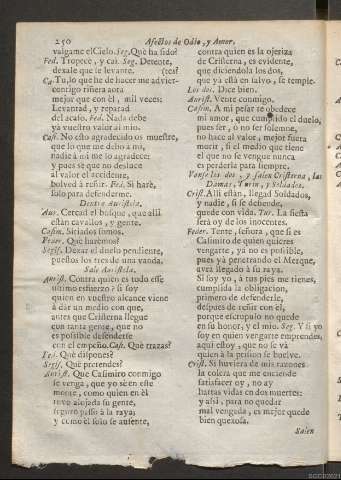 250 Afectos de Odio, y Amor.
valgame el Cielo. Seg. Què ha sido?
Fed. Tropecè, y caì. Seg. Detente,
dexale que se levante. (tes!
Ca. Tu, lo que he de hacer me advier-
contigo riñera aora
mejor que con èl, mil veces:
Levantad, y reparad
del acaso. Fed. Nada debe
yà vuestro valor al mio.
Cas. No estès agradecido os muestre,
que lo que me debo à mi,
nadie à mi me lo agradece:
y pues sè que no desluce
al valor el accidente,
bolved à reñir. Fed. Si harè,
solo para defenderme.
Dentro Auristela.
Aur. Cercad el bosque, que alli
estàn cavallos, y gente.
Casim. Sitiados somos.
Feder. Què harèmos?
Segis. Dexar el duelo pendiente,
puestos los tres de una vanda.
Sale Auristela.
Aurist. Contra quien es todo esse
ultimo esfuerzo? si soy
quien en vuestro alcance viene
à dàr un medio con que,
antes que Cristerna llegue
con tanta gente, que no
es possible defenderse
con el empeño. Cas. Què trazas?
Fed. Què dispones?
Segis. Què pretendes?
Aurist. Que Casimiro conmigo
se venga, que yo sè en este
monte, como quien en èl
tuvo alojada su gente,
seguro passo à la raya;
y como èl solo se ausente,
contra quien es la ojeriza
de Cristerna, es evidente,
que diciendola los dos,
que yà està en salvo, se temple.
Los dos. Dice bien.
Aurist. Vente conmigo.
Casim. A mi pesar te obedece
mi amor, que cumplido el duelo,
pues ser, ò no ser solemne,
no hace al valor, mejor fuera
morir, si el medio que tiene
el que no se vengue nunca,
es perderla para siempre.
Vanse los dos, y salen Cristerna, las
Damas, Turin, y Soldados.
Crist. Allì estàn, llegad Soldados,
y nadie, si se defiende,
quede con vida. Tur. La fiesta
serà oy de los inocentes.
Feder. Tente, señora, que si es
Casimiro de quien quieres
vengarte, yà no es possible,
pues yà penetrando el Merque,
avrà llegado à su raya.
Si soy yo, à tus pies me tienes,
cumplida la obligacion,
primero de defenderle,
despues de reñir con èl,
porque escrupulo no quede
en su honor, y el mio. Seg. Y si yo
soy en quien vengarte emprendes,
aqui estoy, que no se và
quien à la prision se buelve.
Crist. Si huviera de mis razones
la colera que me enciende
satisfacer oy, no ay
hartas vidas en dos muertes:
y assi, para no quedar
mal vengada, es mejor quede
bien quexosa.
Salen